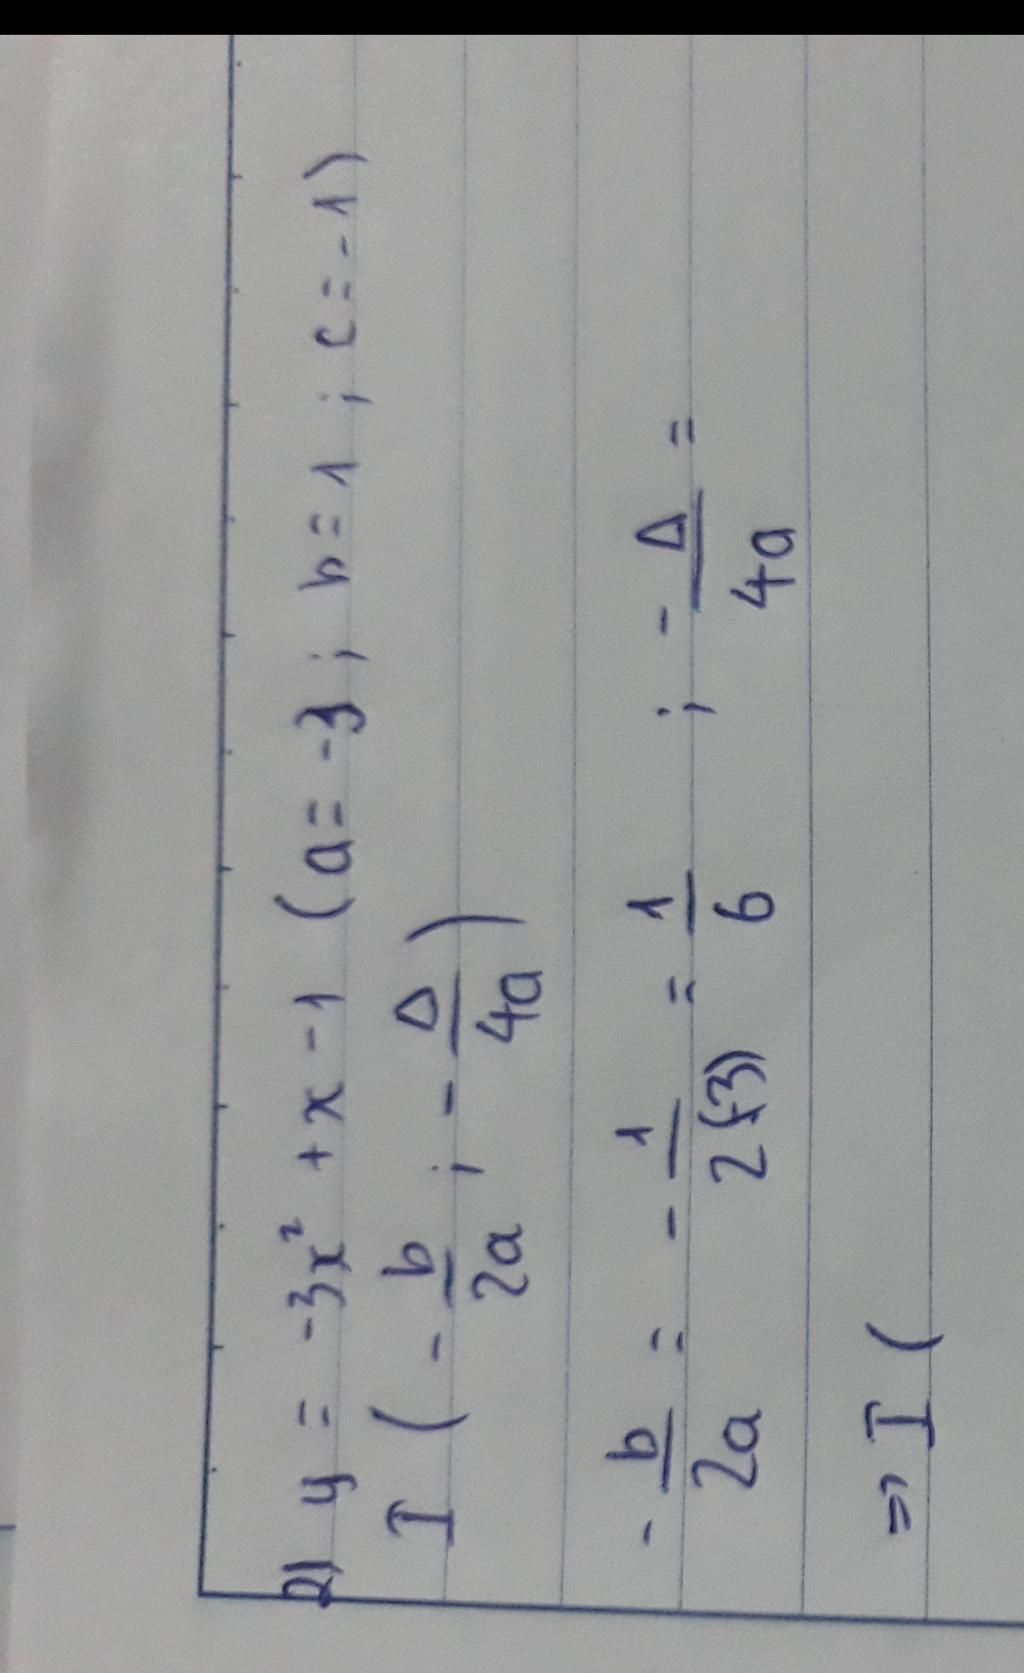 2) y = -3x² + x - 1 (a = -3 ; b = 1 ; c = -1)
I ( - b/2a ; - Δ/4a )
- b/2a = - 1/2(-3) = 1/6 ; - Δ/4a =
⇒ I (